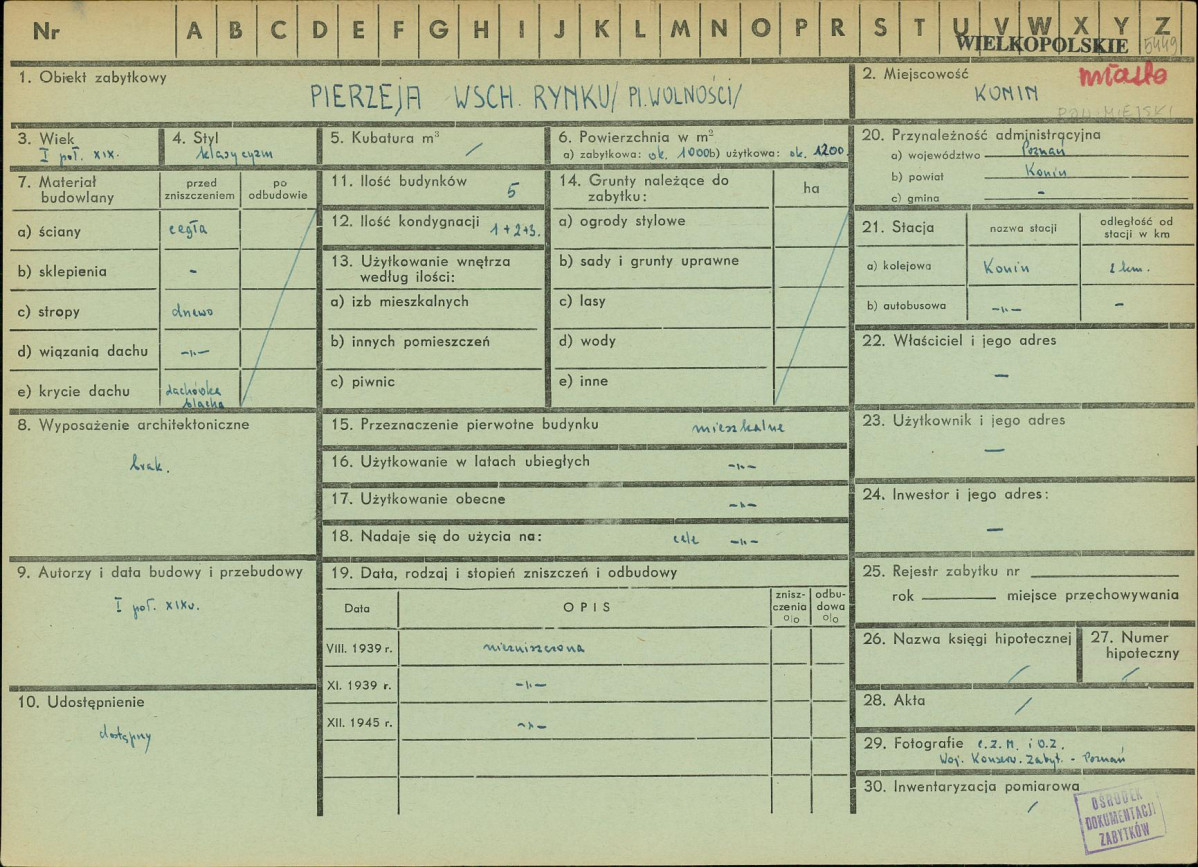 Nr A B C D E F G H I J K L M N O P R S T U V W X Y Z
WIELKOPOLSKIE 5449
1. Obiekt zabytkowy
PIERZEJA WSCH. RYNKU/ Pl. WOLNOŚCI/
2. Miejscowość miasto
KONIN
3. Wiek
I poł. XIX.
4. Styl
klasycyzm
5. Kubatura m³
/
6. Powierzchnia w m²
a) zabytkowa: ok. 1000 b) użytkowa: ok. 1200
20. Przynależność administracyjna
a) województwo Poznań
b) powiat Konin
c) gmina -
7. Materiał budowlany
przed zniszczeniem
po odbudowie
a) ściany cegła
b) sklepienia -
c) stropy drewo
d) wiązania dachu -"-
e) krycie dachu dachówka
blacha
11. Ilość budynków 5
12. Ilość kondygnacji 1+2+3.
13. Użytkowanie wnętrza według ilości:
a) izb mieszkalnych
b) innych pomieszczeń
c) piwnic
14. Grunty należące do zabytku:
ha
a) ogrody stylowe
b) sady i grunty uprawne
c) lasy
d) wody
e) inne
21. Stacja
nazwa stacji
odległość od stacji w km
a) kolejowa Konin 2 km.
b) autobusowa -"- -
22. Właściciel i jego adres
-
8. Wyposażenie architektoniczne
brak.
15. Przeznaczenie pierwotne budynku mieszkalne
16. Użytkowanie w latach ubiegłych -"-
17. Użytkowanie obecne -"-
18. Nadaje się do użycia na: cele -"-
23. Użytkownik i jego adres
-
24. Inwestor i jego adres:
-
9. Autorzy i data budowy i przebudowy
I poł. XIX w.
19. Data, rodzaj i stopień zniszczeń i odbudowy
Data
OPIS
znisz-
czenia
%
odbu-
dowa
%
VIII. 1939 r. niezniszczona
XI. 1939 r. -"-
XII. 1945 r. -"-
25. Rejestr zabytku nr
rok miejsce przechowywania
26. Nazwa księgi hipotecznej
/
27. Numer hipoteczny
/
10. Udostępnienie
dostępny
28. Akta /
29. Fotografie C.Z.M. i O.Z.
Woj. Konserw. Zabyt. - Poznań
30. Inwentaryzacja pomiarowa
/
OŚRODEK
DOKUMENTACJI
ZABYTKÓW